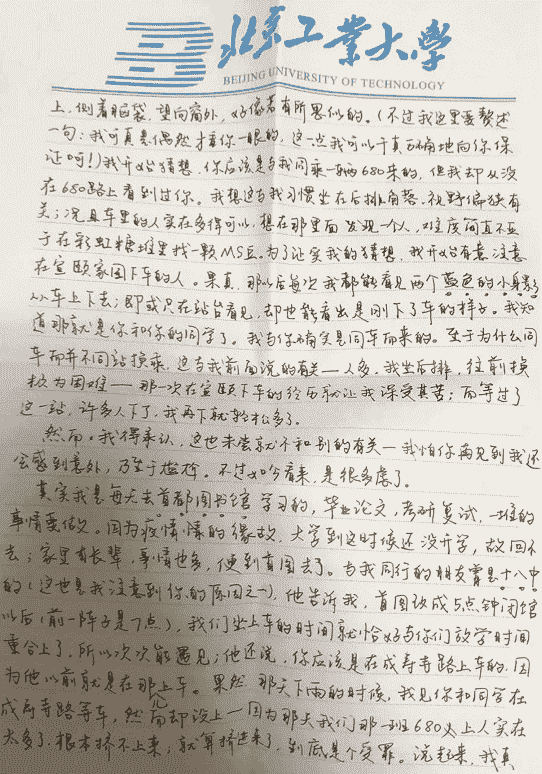 北京工业大学
BEIJING UNIVERSITY OF TECHNOLOGY
上，侧着脑袋，望向窗外，好像若有所思似的。（不过我这里要赘述
一句：我可真是偶然才看你一眼的，这一点我可以千真万确地向你保
证呵！）我开始猜想，你应该是与我同乘一辆680来的，但我却从没
在680路上看到过你。我想这与我习惯坐在后排角落，视野偏狭有
关；况且车里的人实在多得可以，想在那里面发现一个人，难度简直不亚
于在彩虹糖堆里找一颗MS豆。为了证实我的猜想，我开始有意注意
在宣颐家园下车的人。果真，那以后每次我都能看见两个蓝色的小身影
从车上下去；即或只在站台看见，却也能看出是刚下了车的样子。我知
道那就是你和你的同学了。我与你确实是同车而来的。至于为什么同
车而并不同站换乘，这与我前面说的有关——人多，我坐后排，往前换
较为困难——那一次在宣颐下车的经历就让我深受其苦；而等过了
这一站，许多人下了，我再下就轻松多了。
然而。我得承认，这也未尝就不和别的有关——我怕你再见到我还
会感到意外，乃至于尴尬。不过如今看来，是很多虑了。
其实我是每天去首都图书馆学习的，毕业论文，考研复试，一堆的
事情要做。因为疫情的缘故，大学到这时候还没开学，故回不
去；家里有长辈，事情也多，便到首图去了。与我同行的朋友曾是十八中
的（这也是我注意到你的原因之一），他告诉我，首图改成5点钟闭馆
以后（前一阵子是7点），我们坐上车的时间就恰好与你们放学时间
重合上了，所以次次能遇见；他还说，你应该是在成寿寺路上车的，因
为他以前就是在那上车。果然，那天下雨的时候，我见你和同学在
成寿寺路等车，然而却没上——因为那天我们那一班680上人实在
太多了，根本挤不上来；就算挤进来了，到底是个受罪。说起来，我真